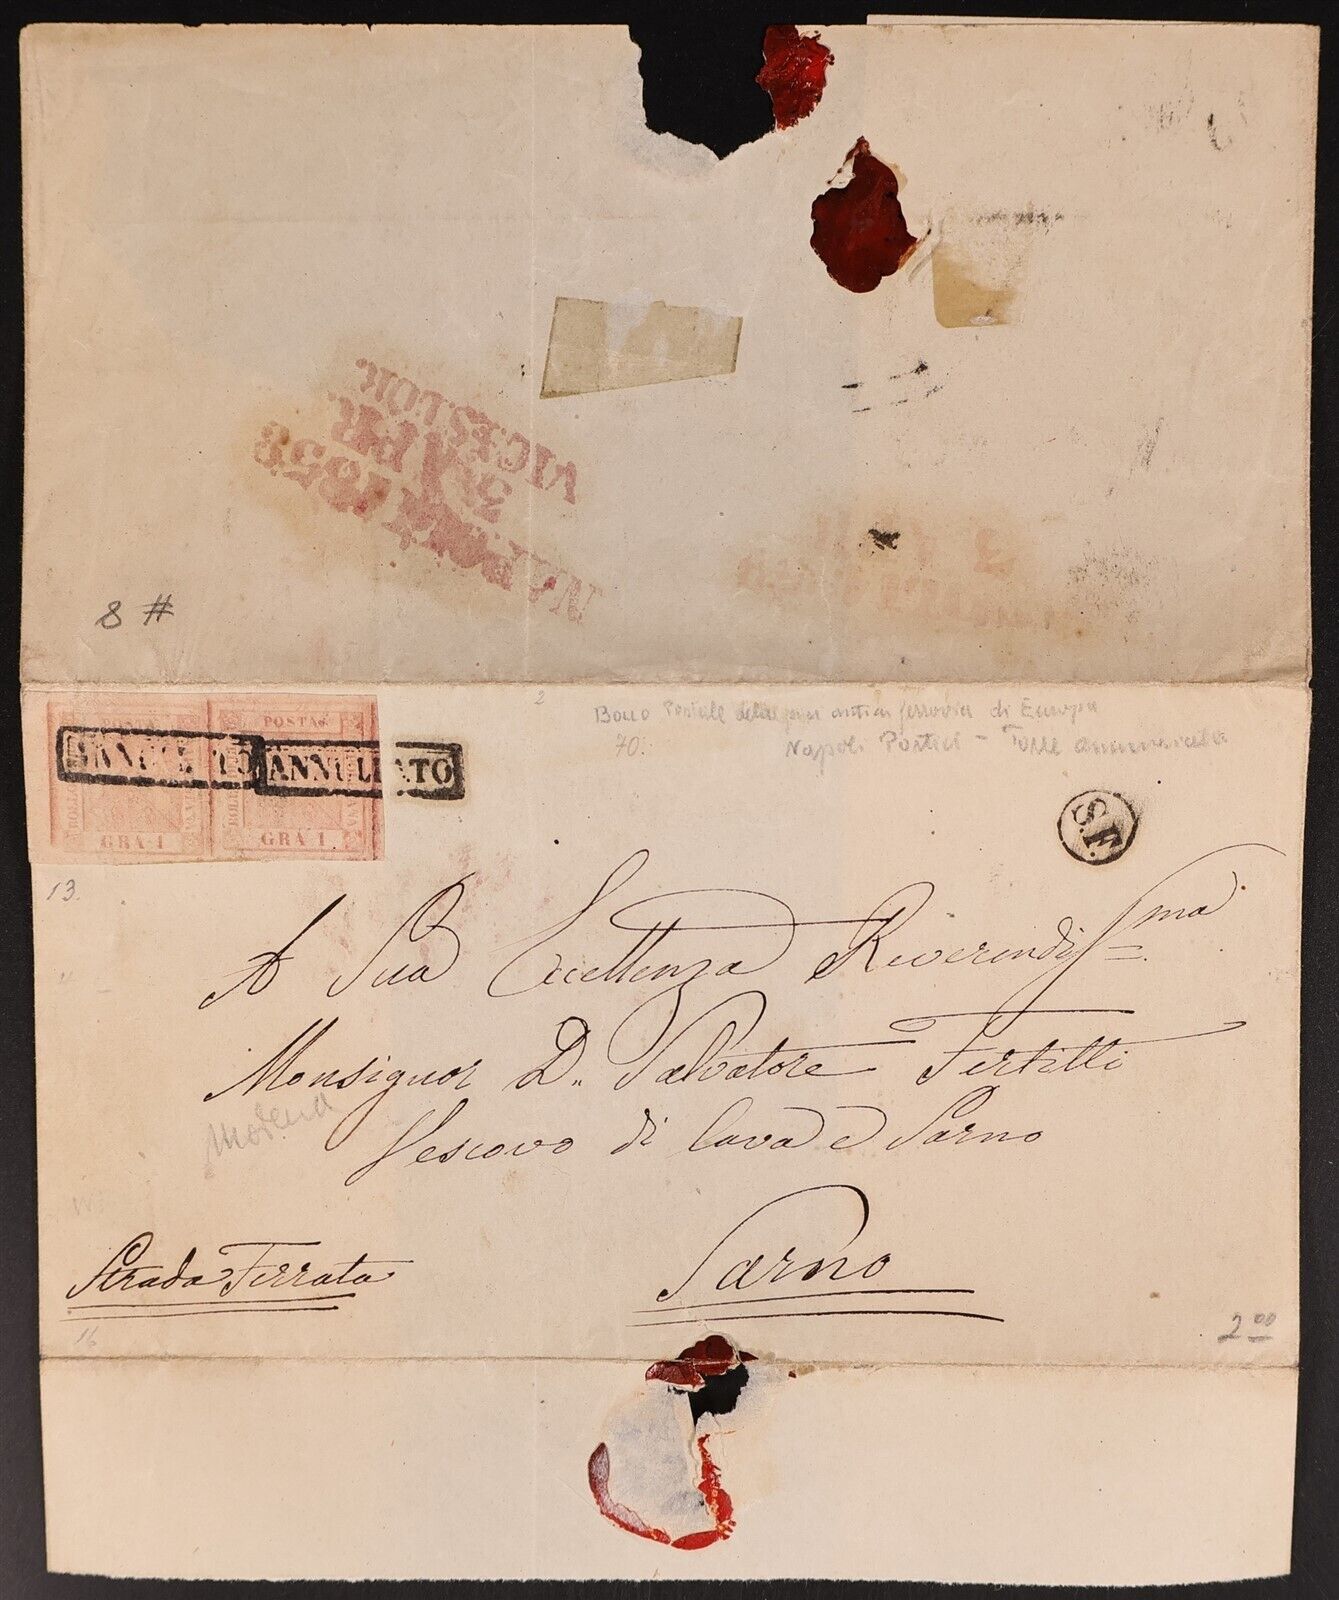 1858
8 #
2
Bollo Postale della più antica ferrovia di Europa
70.
Napoli Portici - Torre Annunziata
ANNULLATO
ANNULLATO
POSTA
BOLLO
GRA 1
POSTA
BOLLO
GRA 1
S.F.
13.
A Sua Eccellenza Reverendiss.ma
Monsignor D. Salvatore Fertitti
Vescovo di Cava e Sarno
Modena
Strada Ferrata
Sarno
16
2 00